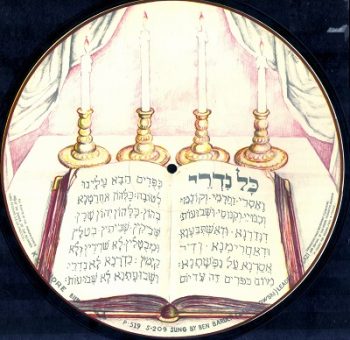 כל נדרי
ואסרי וחרמי וקונמי
וכנויי וקנוסי ושבועות
דנדרנא ודאשתבענא
ודאחרימנא
אסרנא על נפשתנא
מיום כפרים זה עד יום
כפרים הבא עלינו
לטובה כלהון אחרטנא
בהון כלהון יהון שרן
שביקין שביתין בטלין
ומבטלין לא שרירין ולא
קימין נדרנא לא נדרי
ושבועתנא לא שבועות
P 519 S-209 SUNG BY BEN